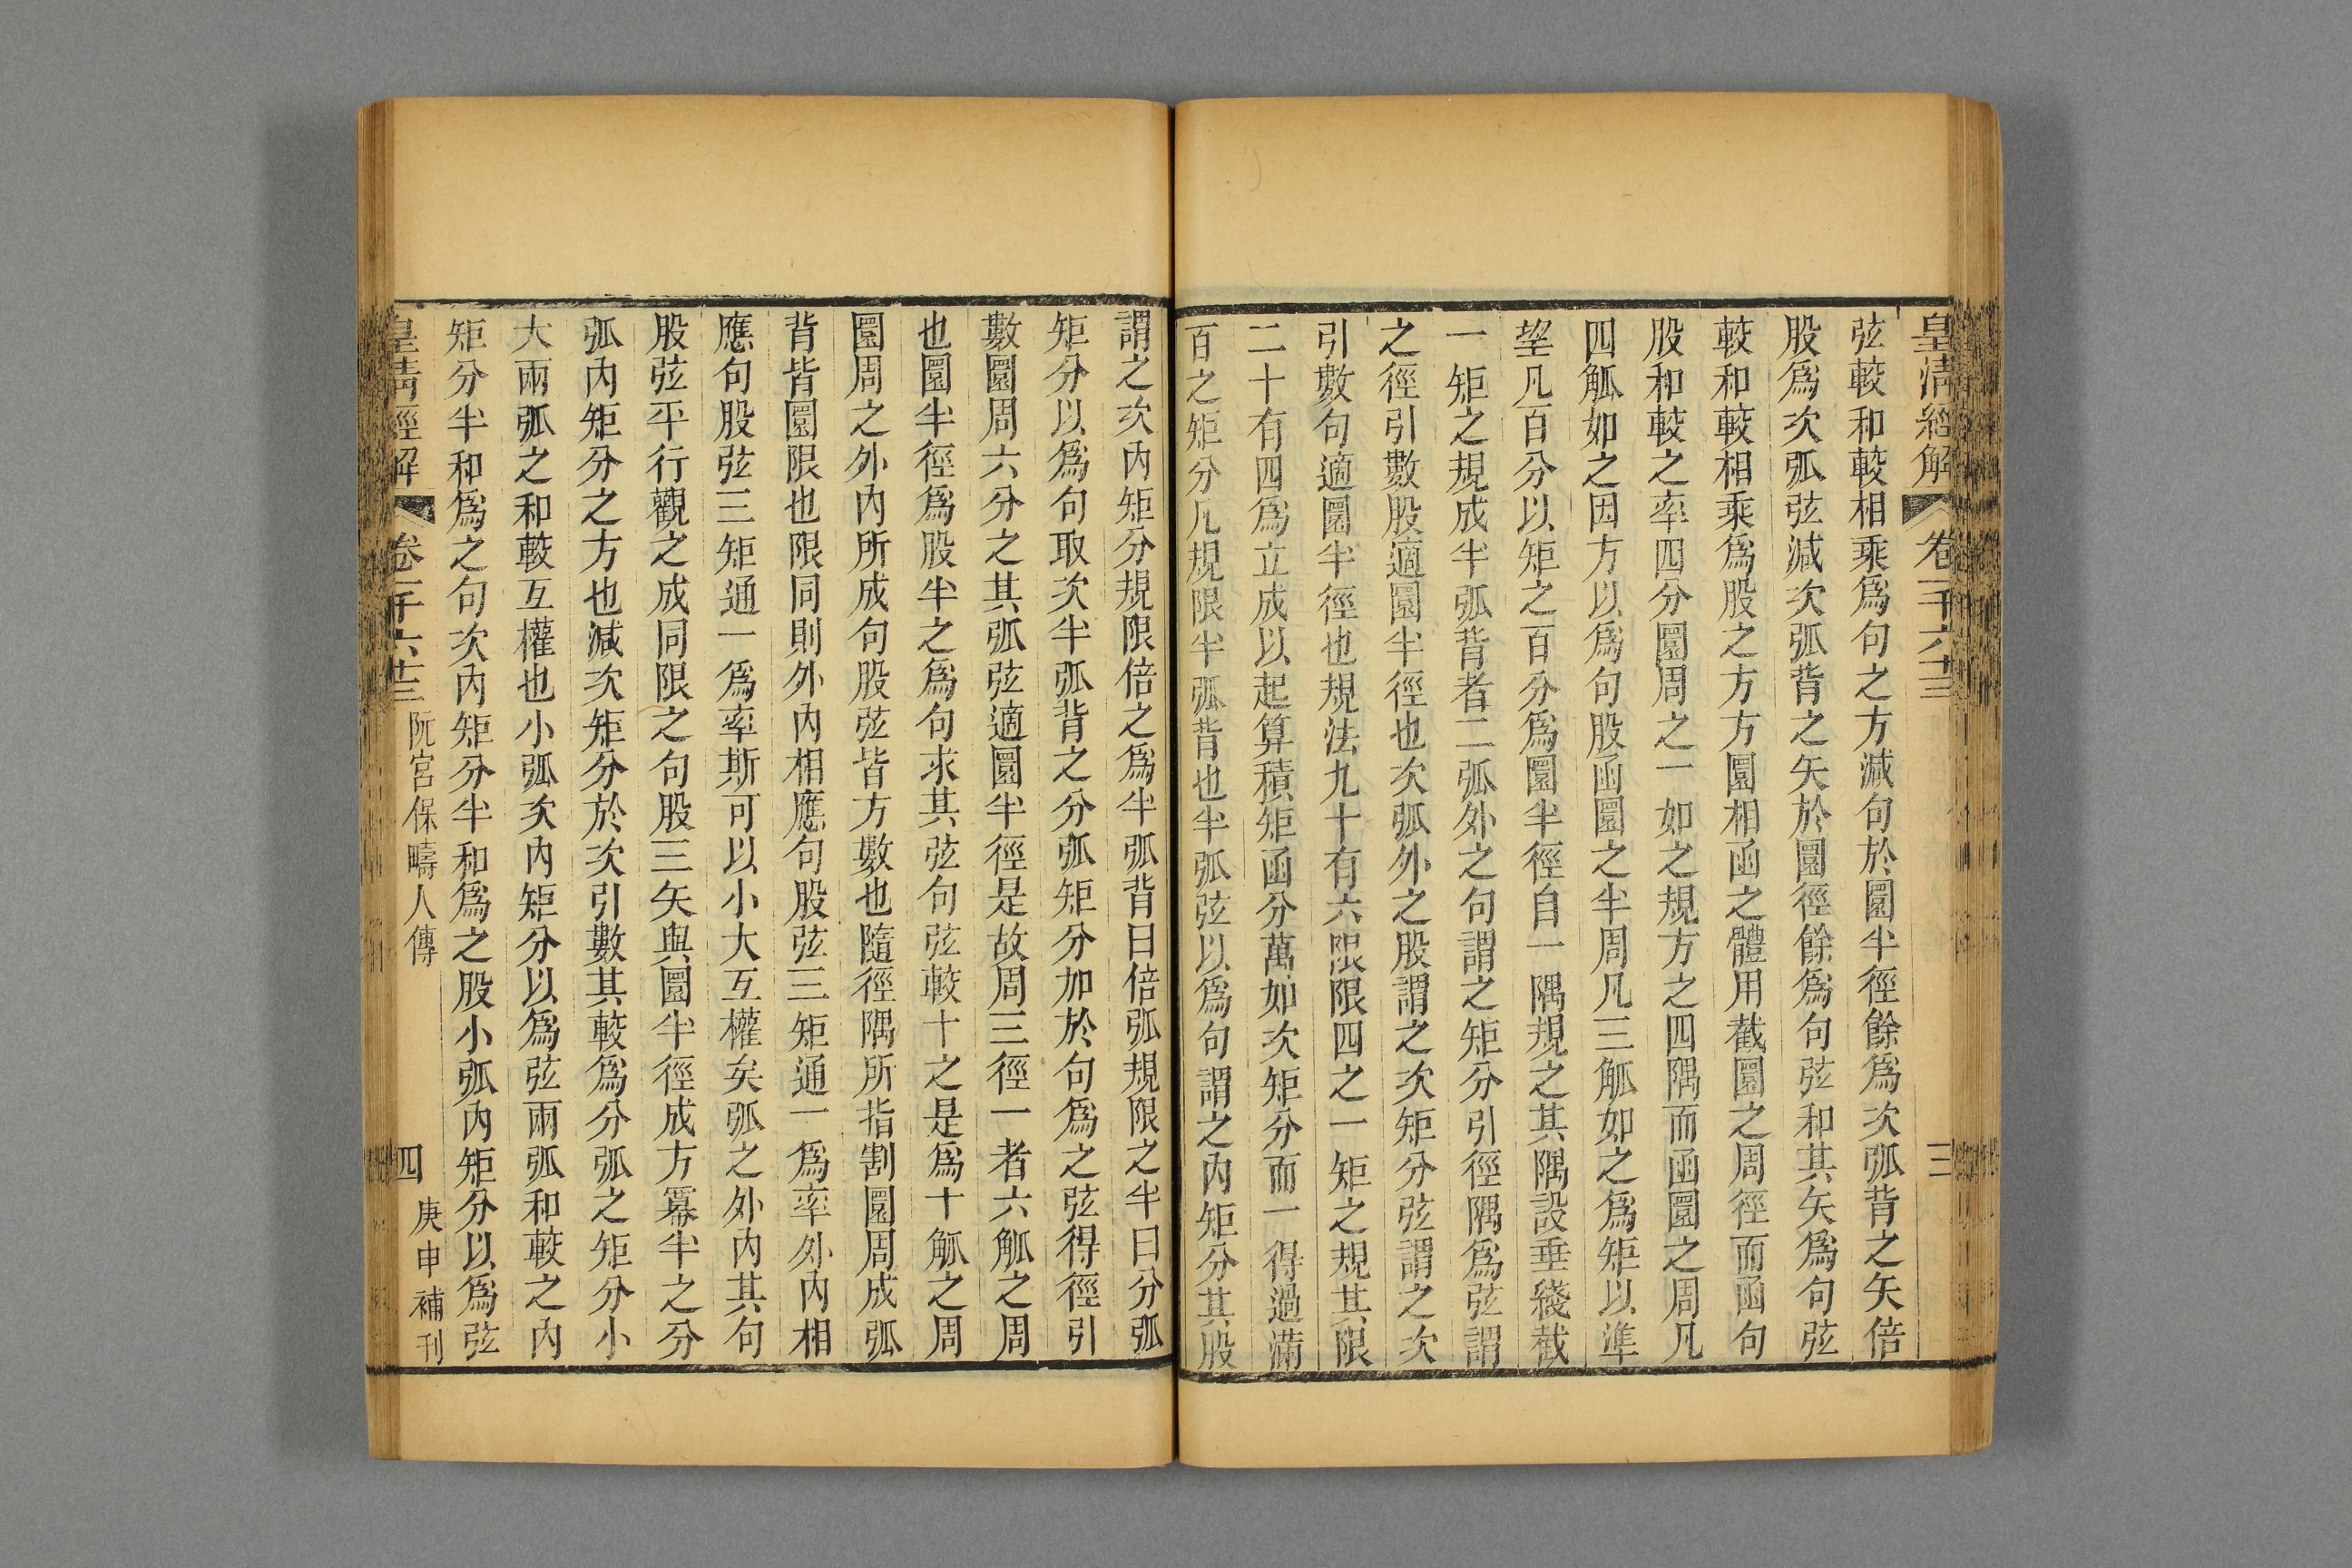 皇清經解 卷一千六十三 三
弦較和較相乘爲句之方減句於圜半徑餘爲次弧背之矢倍
股爲次弧弦減次弧背之矢於圜徑餘爲句弦和其矢爲句弦
較和較相乘爲股之方方圜相函之體用截圜之周徑而函句
股和較之率四分圜周之一如之規方之四隅而函圜之周凡
四觚如之因方以爲句股函圜之半周凡三觚如之爲矩以準
朢凡百分以矩之百分爲圜半徑自一隅規之其隅設垂綫截
一矩之規成半弧背者二弧外之句謂之矩分引徑隅爲弦謂
之徑引數股適圜半徑也次弧外之股謂之次矩分弦謂之次
引數句適圜半徑也規法九十有六限限四之一矩之規其限
二十有四爲立成以起算積矩函分萬如次矩分而一得過滿
百之矩分凡規限半弧背也半弧弦以爲句謂之內矩分其股
謂之次內矩分規限倍之爲半弧背曰倍弧規限之半曰分弧
矩分以爲句取次半弧背之分弧矩分加於句爲之弦得徑引
數圜周六分之其弧弦適圜半徑是故周三徑一者六觚之周
也圜半徑爲股半之爲句求其弦句弦較十之是爲十觚之周
圜周之外內所成句股弦皆方數也隨徑隅所指割圜周成弧
背皆圜限也限同則外內相應句股弦三矩通一爲率外內相
應句股弦三矩通一爲率斯可以小大互權矣弧之外內其句
股弦平行觀之成同限之句股三矢與圜半徑成方冪半之分
弧內矩分之方也減次矩分於次引數其較爲分弧之矩分小
大兩弧之和較互權也小弧次內矩分以爲弦兩弧和較之內
矩分半和爲之句次內矩分半和爲之股小弧內矩分以爲弦
皇清經解 卷一千六十三 阮宮保疇人傳 四 庚申補刊